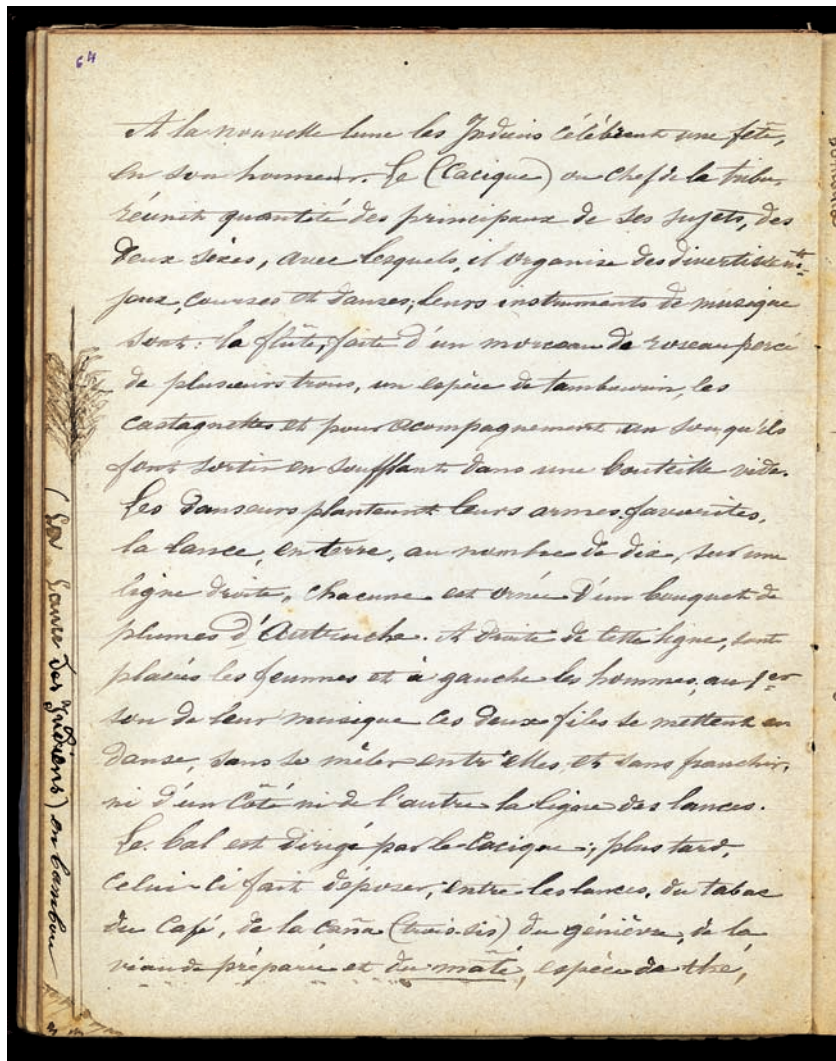 64
A la nouvelle lune les Indiens célèbrent une fête,
en son honneur. Le (Cacique) ou chef de la tribu,
réunit quantité des principaux de ses sujets, des
deux sèxes, avec lesquels, il organise des divertissemts
jeux, courses et danses; leurs instruments de musique
sont: la flûte, faite d'un morceau de roseau percé
de plusieurs trous, un espèce de tambourin, les
castagnettes et pour acompagnement un son qu'ils
font sortir en soufflant dans une bouteille vide.
Les danseurs plantent leurs armes favorites,
la lance, en terre, au nombre de dix, sur une
ligne droite, chacune est ornée d'un bouquet de
plumes d'Autruche. A droite de cette ligne, sont
placées les femmes et à gauche les hommes, au 1er
son de leur musique ces deux files se mettent en
danse, sans se mêler entr'elles, et sans franchir,
ni d'un côté ni de l'autre la ligne des lances.
Le bal est dirigé par le Cacique; plus tard,
celui-ci fait déposer, entre les lances, du tabac
du Café, de la Caña (trois-six) du génièvre, de la
viande préparée et du maté, espèce de thé,
(La Lance des Indiens) en bambou